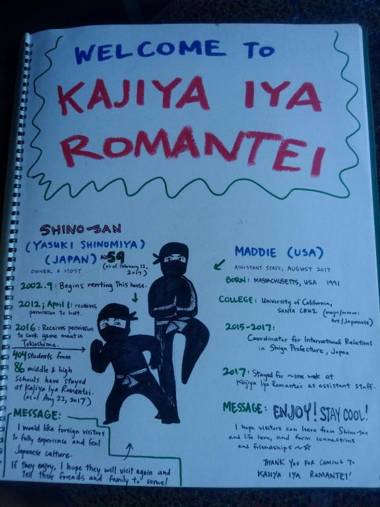 WELCOME TO
KAJIYA IYA
ROMANTEI
SHINO-SAN
(YASUKI SHINOMIYA)
(JAPAN) 59
(as of February 12,
2017)
OWNER & HOST
2002.9: Begins renting this house.
2012; April: receives
permission to host.
2016: Receives permission
to cook game meat in
Tokushima.
404 students from
86 middle & high
schools have stayed
at Kajiya Iya Romantei.
(as of Aug 22, 2017)
MESSAGE:
I would like foreign visitors
to fully experience and feel
Japanese culture.
If they enjoy, I hope they will visit again and
tell their friends and family to come!
MADDIE (USA)
ASSISTANT STAFF, AUGUST 2017
BORN: MASSACHUSETTS, USA 1991
COLLEGE: University of California,
SANTA CRUZ
Art/Japanese)
2015-2017:
Coordinator for International Relations
in Shiga Prefecture, Japan
2017: Stayed for one week at
Kajiya Iya Romantei as assistant staff.
MESSAGE: ENJOY! STAY COOL!
I hope visitors can learn from Shino-san
and Iya here, and form connections
and friendships
THANK YOU FOR COMING TO
KAJIYA IYA ROMANTEI!